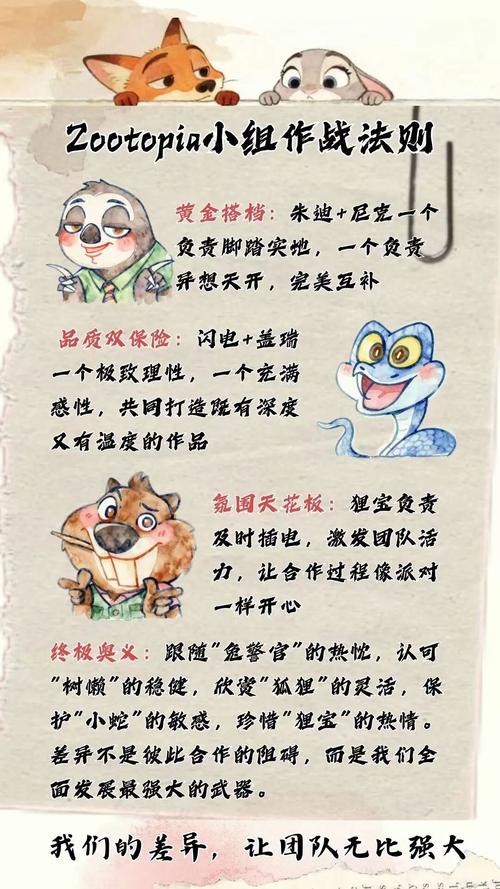 Zootopia小组作战法则
黄金搭档：朱迪+尼克一个
负责脚踏实地，一个负责
异想天开，完美互补
品质双保险：闪电+盖瑞
一个极致理性，一个充满
感性，共同打造既有深度
又有温度的作品
氛围天花板：狸宝负责
及时插电，激发团队活
力，让合作过程像派对
一样开心
终极奥义：跟随"兔警官"的热忱，认可
"树懒"的稳健，欣赏"狐狸"的灵活，保
护"小蛇"的敏感，珍惜"狸宝"的热情。
差异不是彼此合作的阻碍，而是我们全
面发展最强大的武器。
我们的差异，让团队无比强大